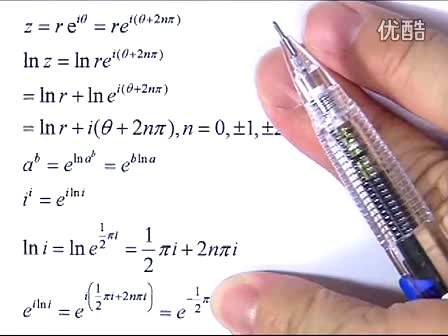 优酷
z = r e^{iθ} = re^{i(θ+2nπ)}
ln z = ln re^{i(θ+2nπ)}
= ln r + ln e^{i(θ+2nπ)}
= ln r + i(θ + 2nπ), n = 0, ±1, ±2
a^b = e^{ln a^b} = e^{b ln a}
i^i = e^{i ln i}
ln i = ln e^{\frac{1}{2}πi} = \frac{1}{2}πi + 2nπi
e^{i ln i} = e^{i(\frac{1}{2}πi+2nπi)} = e^{-\frac{1}{2}π}